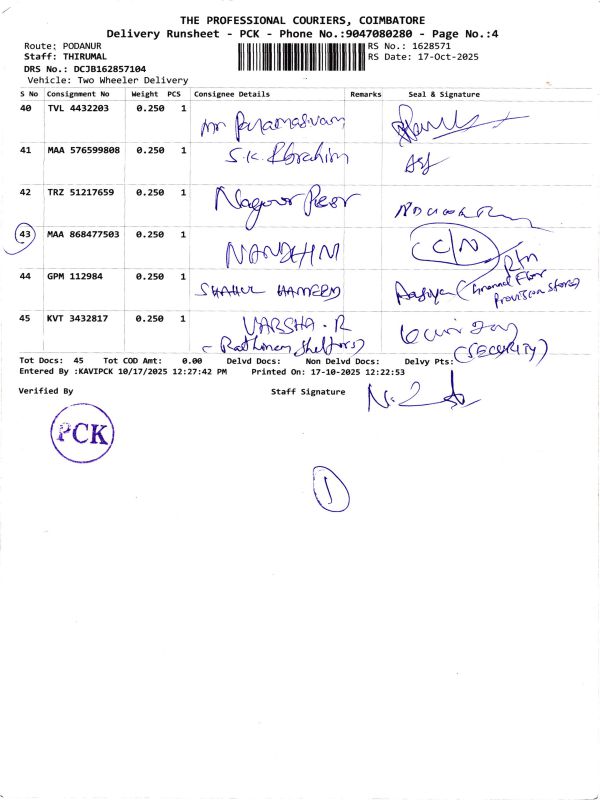 THE PROFESSIONAL COURIERS, COIMBATORE
Delivery Runsheet - PCK - Phone No.:9047080280 - Page No.:4
Route: PODANUR
RS No.: 1628571
Staff: THIRUMAL
RS Date: 17-Oct-2025
DRS No.: DCJB162857104
Vehicle: Two Wheeler Delivery
S No Consignment No Weight PCS Consignee Details Remarks Seal & Signature
40 TVL 4432203 0.250 1 Mr Paramasivam
41 MAA 576599808 0.250 1 S.K. Ibrahim
42 TRZ 51217659 0.250 1 Nagoor Peer
43 MAA 868477503 0.250 1 NANDHINI C/N
44 GPM 112984 0.250 1 SHAHUL HAMEED
Provision Store)
45 KVT 3432817 0.250 1 VARSHA.R
(Rathinam Shelters) (SECURITY)
Tot Docs: 45 Tot COD Amt: 0.00 Delvd Docs: Non Delvd Docs: Delvy Pts:
Entered By :KAVIPCK 10/17/2025 12:27:42 PM Printed On: 17-10-2025 12:22:53
Verified By Staff Signature
PCK
1